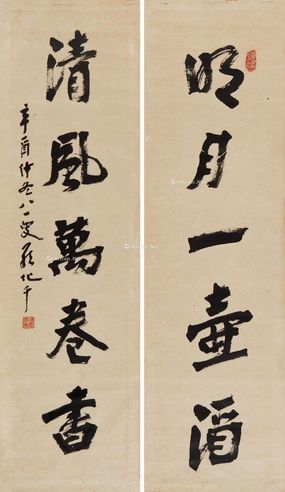 明月一壺酒
清風萬卷書
辛酉仲冬八一叟蔡地千